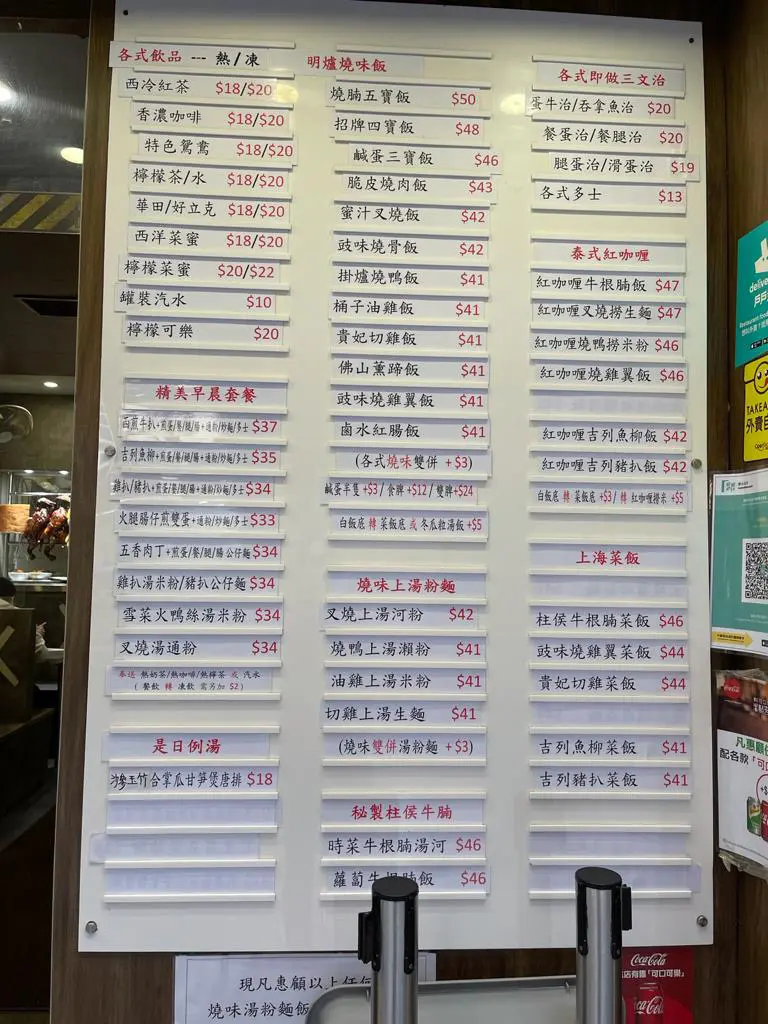 各式飲品 --- 熱/凍
西冷紅茶 $18/$20
香濃咖啡 $18/$20
特色鴛鴦 $18/$20
檸檬茶/水 $18/$20
華田/好立克 $18/$20
西洋菜蜜 $18/$20
檸檬菜蜜 $20/$22
罐裝汽水 $10
檸檬可樂 $20
精美早晨套餐
西煎牛扒+煎蛋/餐/腿/腸+通粉/炒麵/多士 $37
吉列魚柳+煎蛋/餐/腿/腸+通粉/炒麵/多士 $35
雞扒/豬扒+煎蛋/餐/腿/腸+通粉/炒麵/多士 $34
火腿腸仔煎雙蛋+通粉/炒麵/多士 $33
五香肉丁+煎蛋/餐/腿/腸 公仔麵 $34
雞扒湯米粉/豬扒公仔麵 $34
雪菜火鴨絲湯米粉 $34
叉燒湯通粉 $34
奉送 熱奶茶/熱咖啡/熱檸茶 或 汽水
(餐飲 轉 凍飲 需另加 $2)
是日例湯
沙參玉竹合掌瓜甘笋煲唐排 $18
明爐燒味飯
燒腩五寶飯 $50
招牌四寶飯 $48
鹹蛋三寶飯 $46
脆皮燒肉飯 $43
蜜汁叉燒飯 $42
豉味燒骨飯 $42
掛爐燒鴨飯 $41
桶子油雞飯 $41
貴妃切雞飯 $41
佛山薰蹄飯 $41
豉味燒雞翼飯 $41
鹵水紅腸飯 $41
(各式燒味雙併 +$3)
鹹蛋半隻+$3/食髀+$12/雙髀+$24
白飯底 轉 菜飯底 或 冬瓜粒湯飯+$5
燒味上湯粉麵
叉燒上湯河粉 $42
燒鴨上湯瀨粉 $41
油雞上湯米粉 $41
切雞上湯生麵 $41
(燒味雙併湯粉麵 +$3)
秘製柱侯牛腩
時菜牛根腩湯河 $46
蘿蔔牛根腩飯 $46
各式即做三文治
蛋牛治/吞拿魚治 $20
餐蛋治/餐腿治 $20
腿蛋治/滑蛋治 $19
各式多士 $13
泰式紅咖喱
紅咖喱牛根腩飯 $47
紅咖喱叉燒撈生麵 $47
紅咖喱燒鴨撈米粉 $46
紅咖喱燒雞翼飯 $46
紅咖喱吉列魚柳飯 $42
紅咖喱吉列豬扒飯 $42
白飯底 轉 菜飯底+$3/轉 紅咖喱撈米+$5
上海菜飯
柱侯牛根腩菜飯 $46
豉味燒雞翼菜飯 $44
貴妃切雞菜飯 $44
吉列魚柳菜飯 $41
吉列豬扒菜飯 $41
現凡惠顧以上任何
燒味湯粉麵飯
TAKEA
外賣自
凡惠顧任
配各款「可
Coca-Cola
店有售「可口可樂」
Coca-Cola